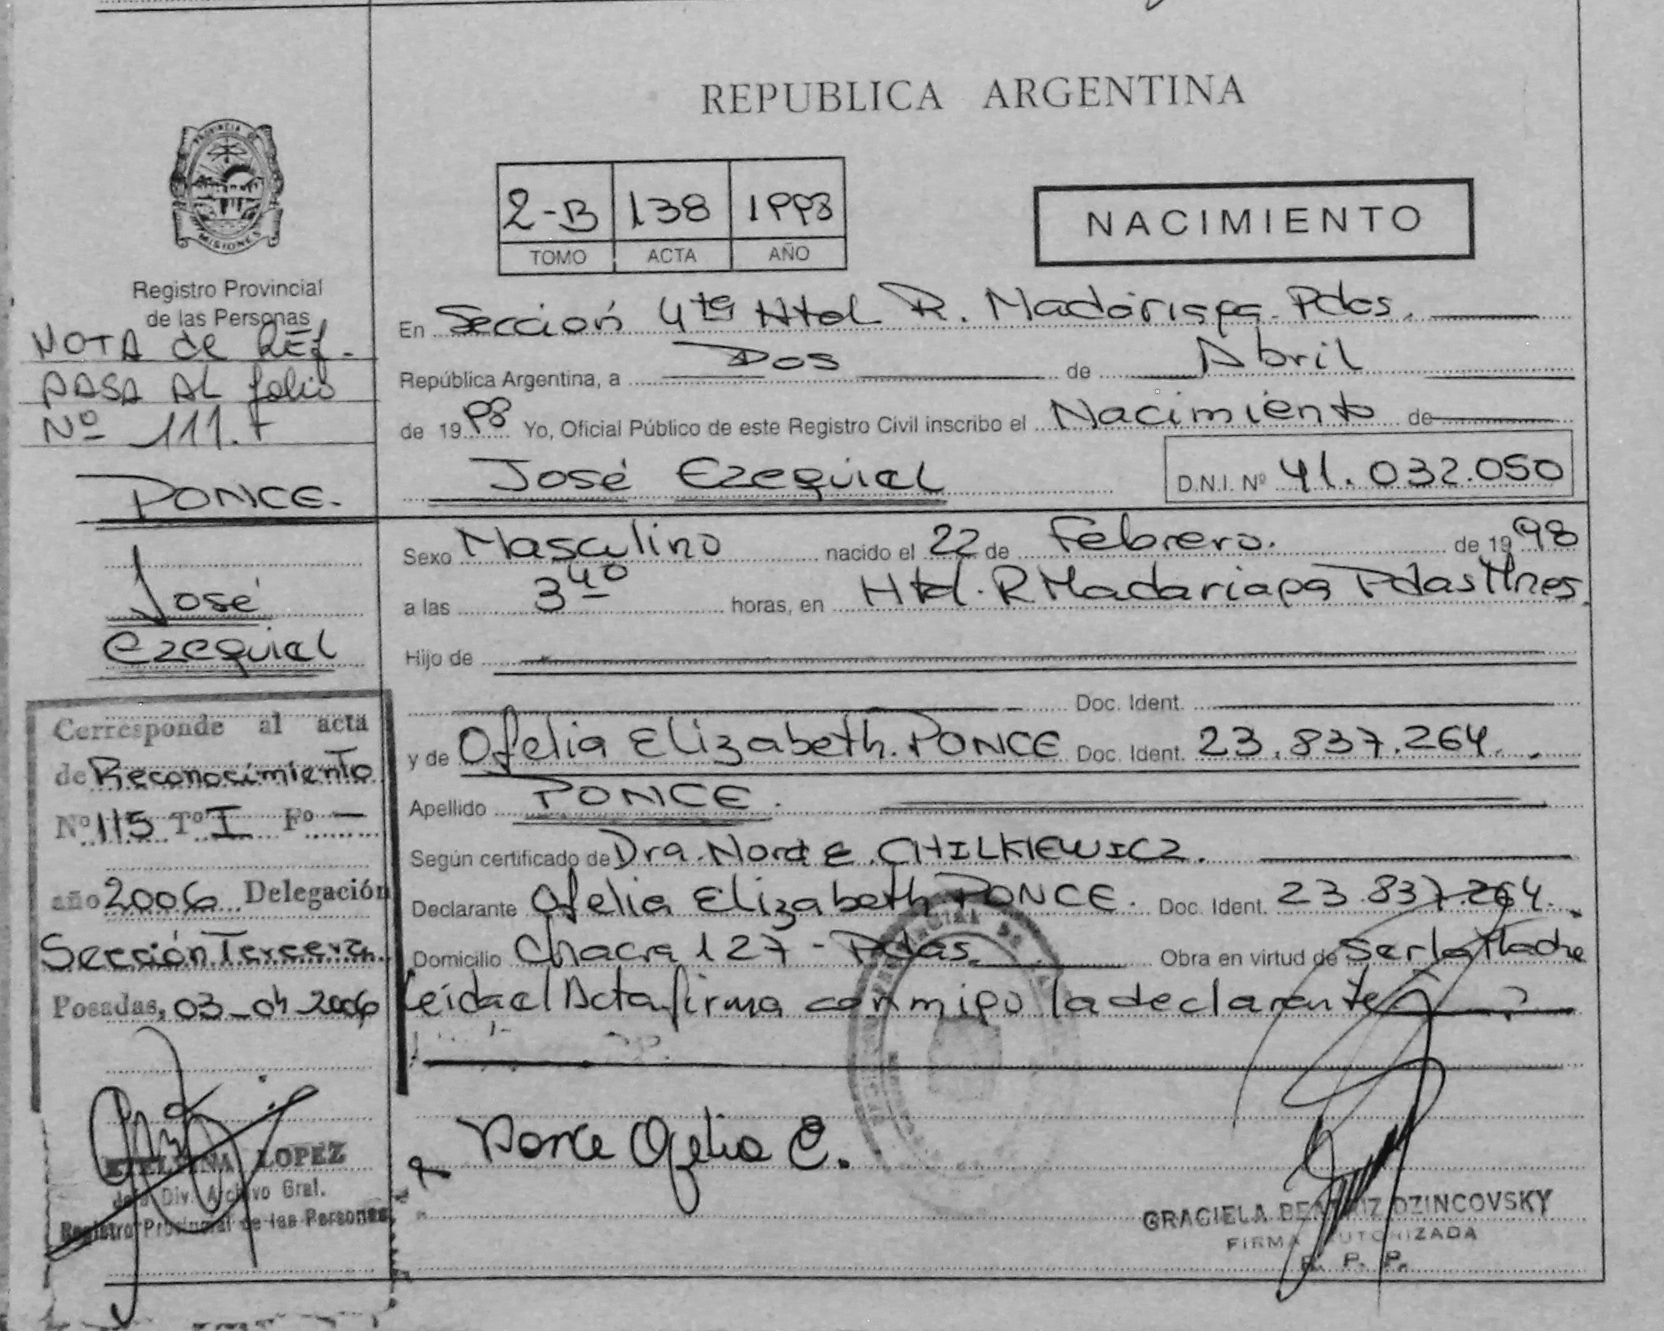 REPUBLICA ARGENTINA
PROVINCIA DE
MISIONES
Registro Provincial
de las Personas
NOTA de REf.
PASA AL folio
Nº 111.
PONCE.
José
Ezequial
2-B 138 1998
TOMO ACTA AÑO
NACIMIENTO
En Sección 4ta Htal R. Madariaga. Pdas.
República Argentina, a Dos de Abril
de 1998 Yo, Oficial Público de este Registro Civil inscribo el Nacimiento de
José Ezequial D.N.I. Nº 41.032.050
Sexo Masculino nacido el 22 de Febrero. de 1998
a las 3 40 horas, en Htal. R Madariaga Pdas Mnes.
Hijo de
Doc. Ident.
y de Ofelia Elizabeth. PONCE Doc. Ident. 23.837.264.
Apellido PONCE.
Según certificado de Dra. Nora E. CHILKIEWICZ.
Declarante Ofelia Elizabeth PONCE. Doc. Ident. 23.837.264.
Domicilio Chacra 127 - Pdas. Obra en virtud de Ser la Madre
Leída el Acta firma conmigo la declarante
Corresponde al acta
de Reconocimiento
Nº 115 Tº I Fº —
año 2006 Delegación
Sección Tercera
Posadas, 03-04-2006
Ponce Ofelia E.
LOPEZ
Div. Archivo Gral.
Registro Provincial de las Personas
GRACIELA BEATRIZ DZINCOVSKY
FIRMA AUTORIZADA
R. P. P.